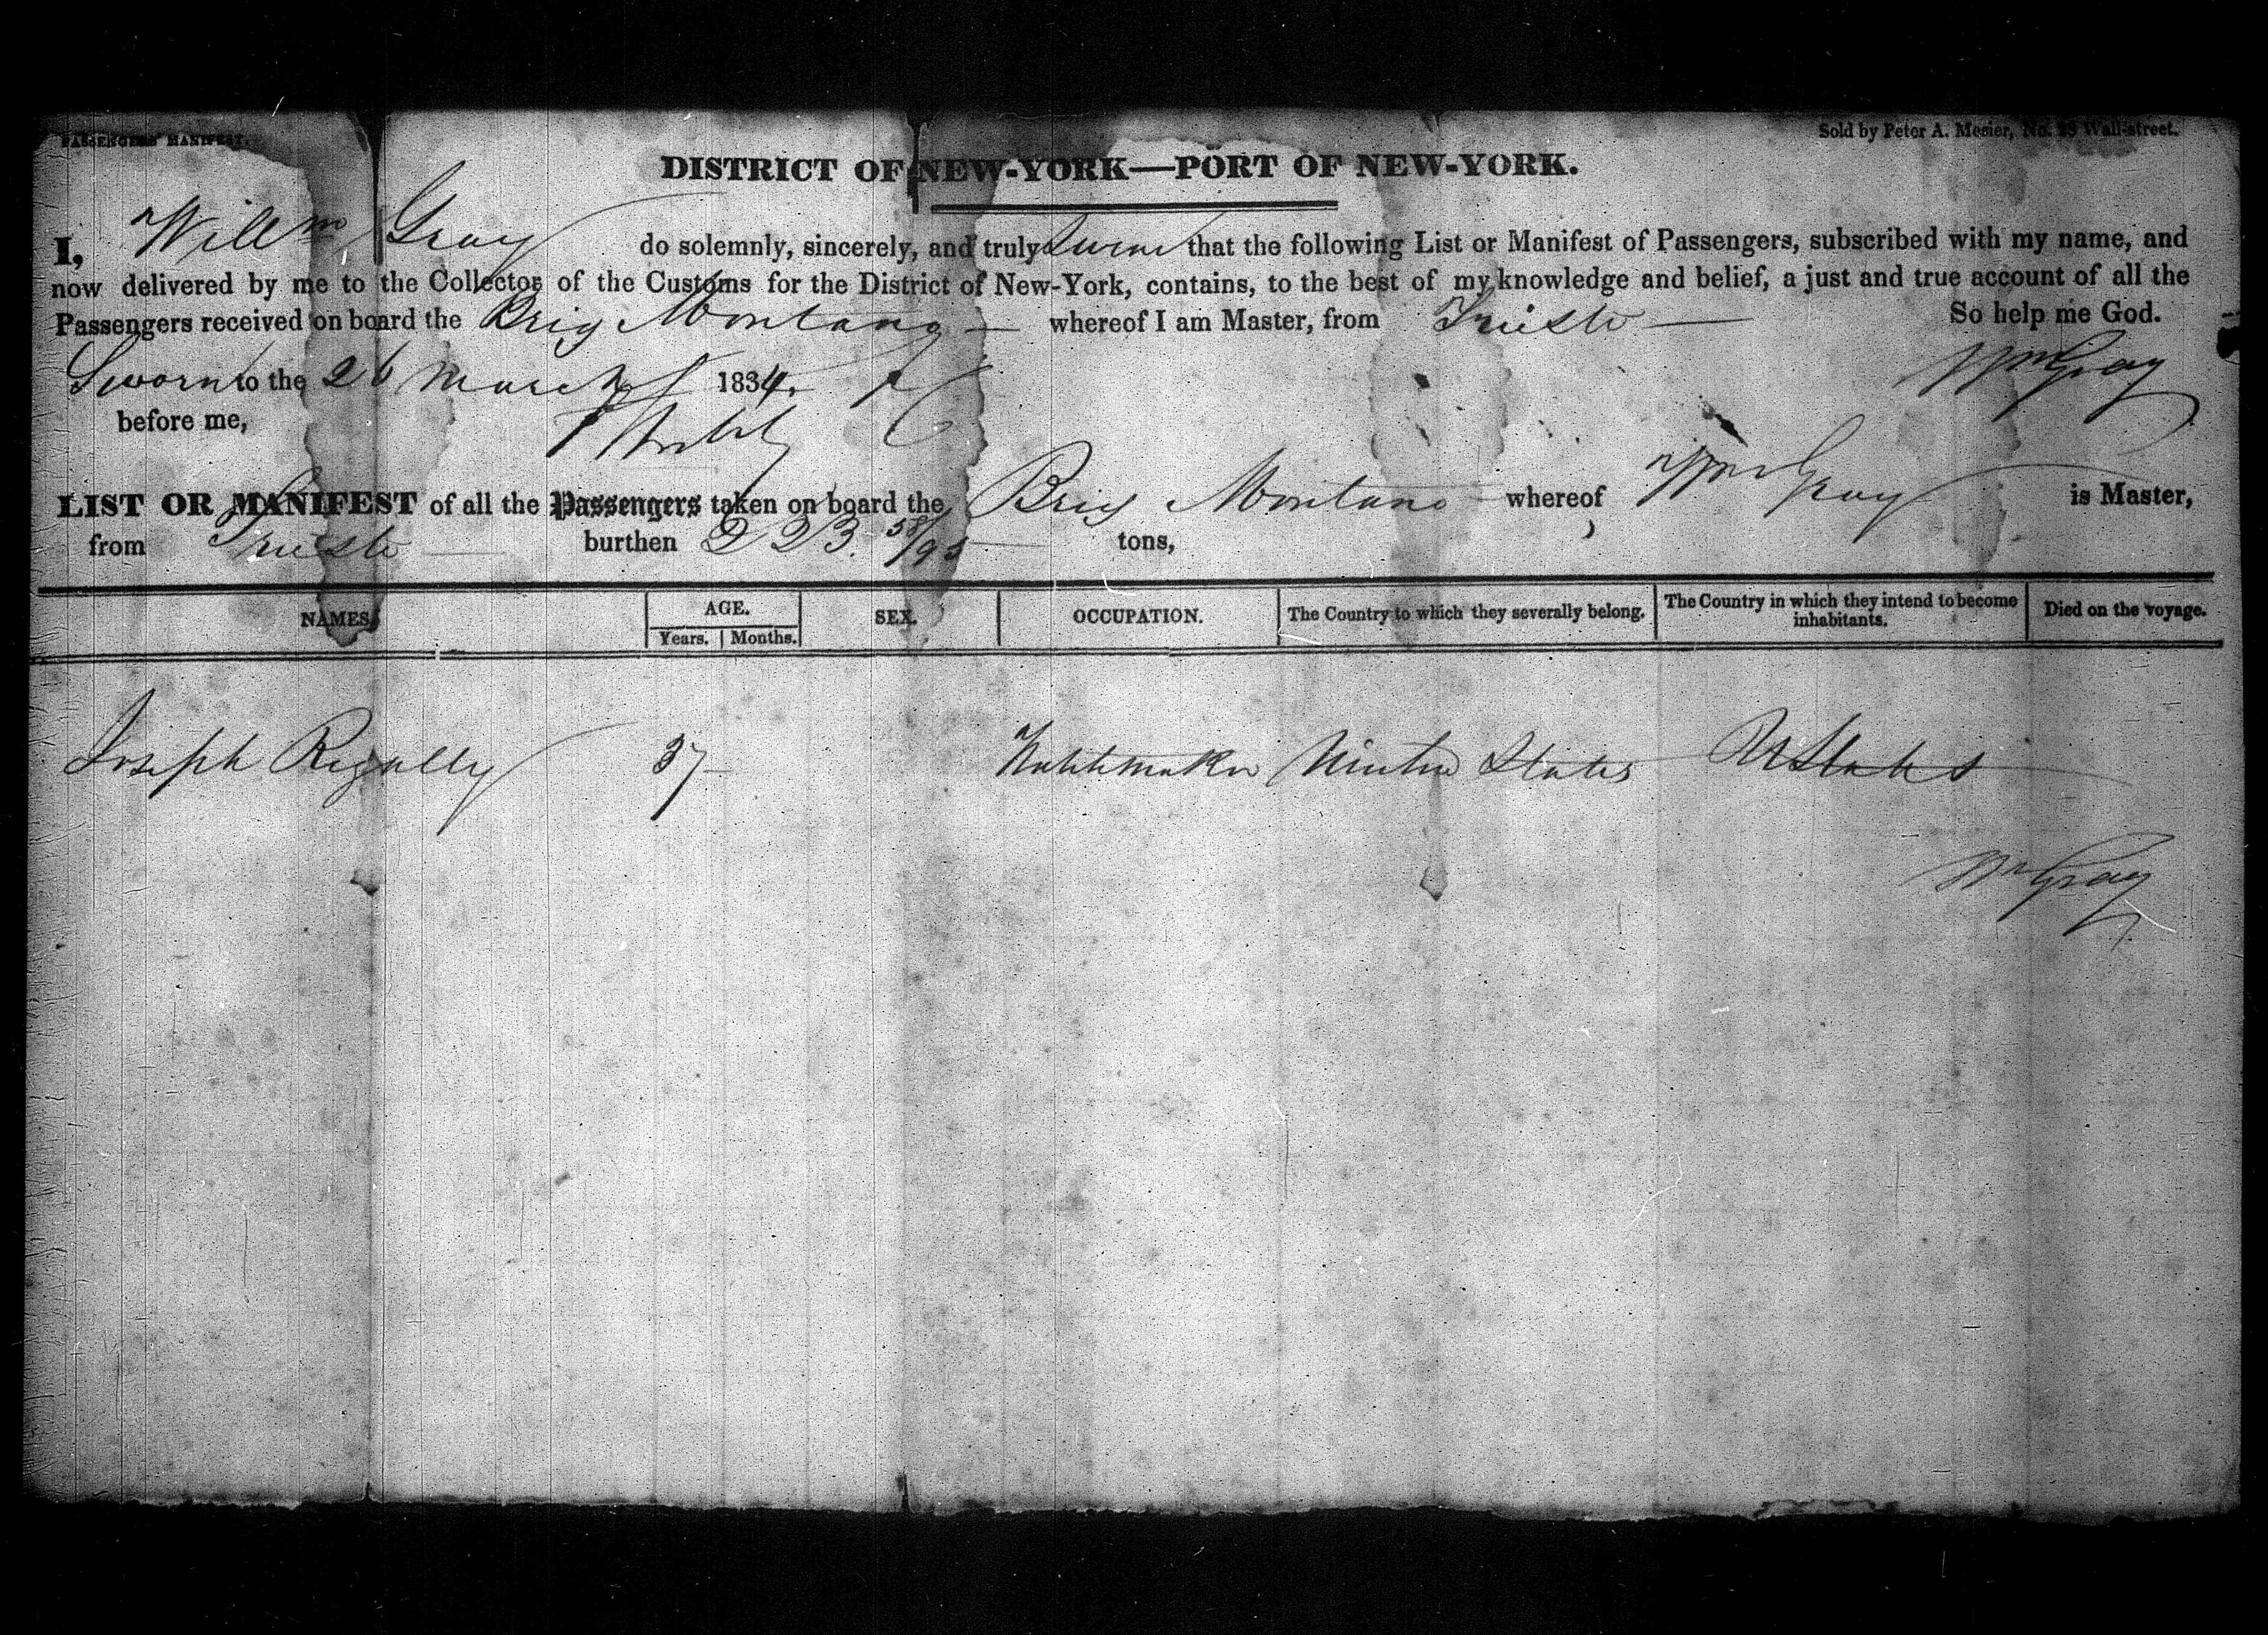 PASSENGERS' MANIFEST.
Sold by Peter A. Mesier, No. 28 Wall-street.
DISTRICT OF NEW-YORK—PORT OF NEW-YORK.
I, Willm Gray do solemnly, sincerely, and truly swear that the following List or Manifest of Passengers, subscribed with my name, and
now delivered by me to the Collector of the Customs for the District of New-York, contains, to the best of my knowledge and belief, a just and true account of all the
Passengers received on board the Brig Montano whereof I am Master, from Trieste So help me God.
Sworn to the 26 March 1834. Wm Gray
before me,
LIST OR MANIFEST of all the Passengers taken on board the Brig Montano whereof Wm Gray is Master,
from Trieste burthen 223. 58/95 tons,
NAMES. AGE. SEX. OCCUPATION. The Country to which they severally belong. The Country in which they intend to become inhabitants. Died on the voyage.
Years. Months.
Joseph Regally 37 Watchmaker United States U States
Wm Gray